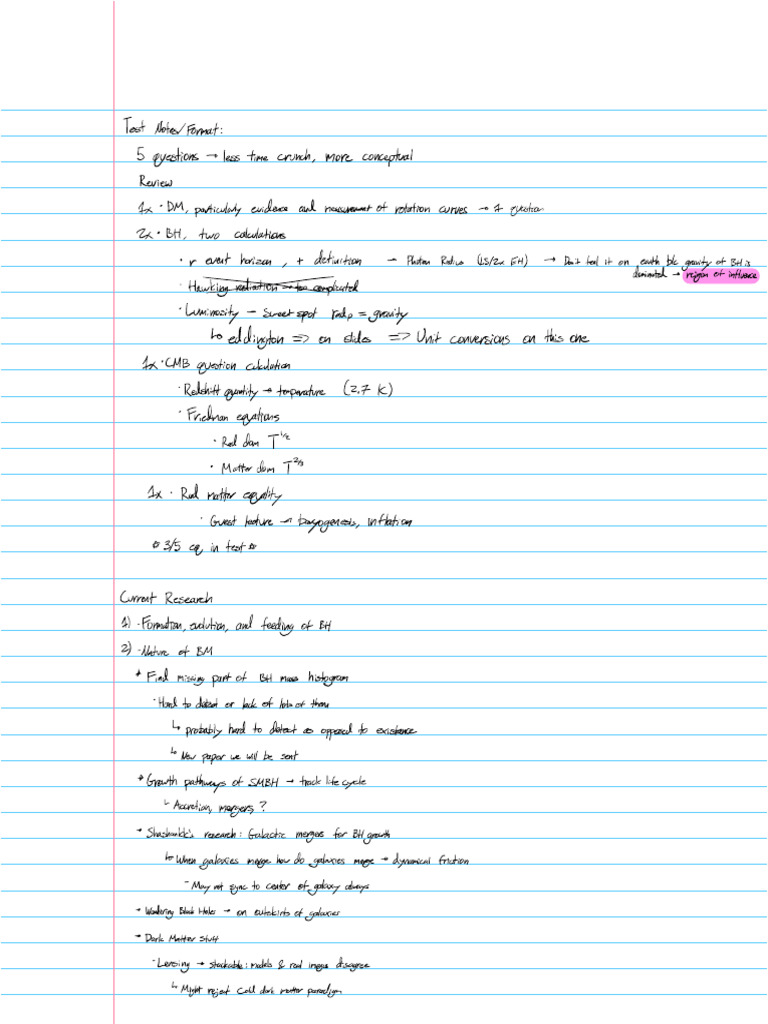 Test Notes/Format:
5 questions → less time crunch, more conceptual
Review
1x • DM, particularly evidence and measurement of rotation curves → 1 question
2x • BH, two calculations
• r event horizon, + definition → Photon Radius (1.5/2x EH) → Don't feel it on earth b/c gravity of BH is
dominated → region of influence
• Hawking radiation → too complicated
• Luminosity – sweet spot = gravity
↳ eddington => on slides => Unit conversions on this one
1x • CMB question calculation
• Redshift quantity → temperature (2.7 K)
• Friedman equations
• Rad dom T^1/2
• Matter dom T^2/3
1x • Rad matter equality
• Guest lecture → baryogenesis, inflation
* 3/5 eq, in test *
Current Research
1) • Formation, evolution, and feeding of BH
2) • Nature of BM
* Find missing part of BH mass histogram
- Hard to detect or lack of lots of them
↳ probably hard to detect as opposed to existence
↳ New paper we will be sent
* Growth pathways of SMBH → track life cycle
↳ Accretion, mergers?
- research: Galactic mergers for BH growth
↳ When galaxies merge how do galaxies merge → dynamical friction
- May not sync to center of galaxy always
- Wandering Black Holes → on outskirts of galaxies
- Dark Matter Stuff
- Lensing → stackable: models & real images disagree
↳ Might reject Cold dark matter paradigm